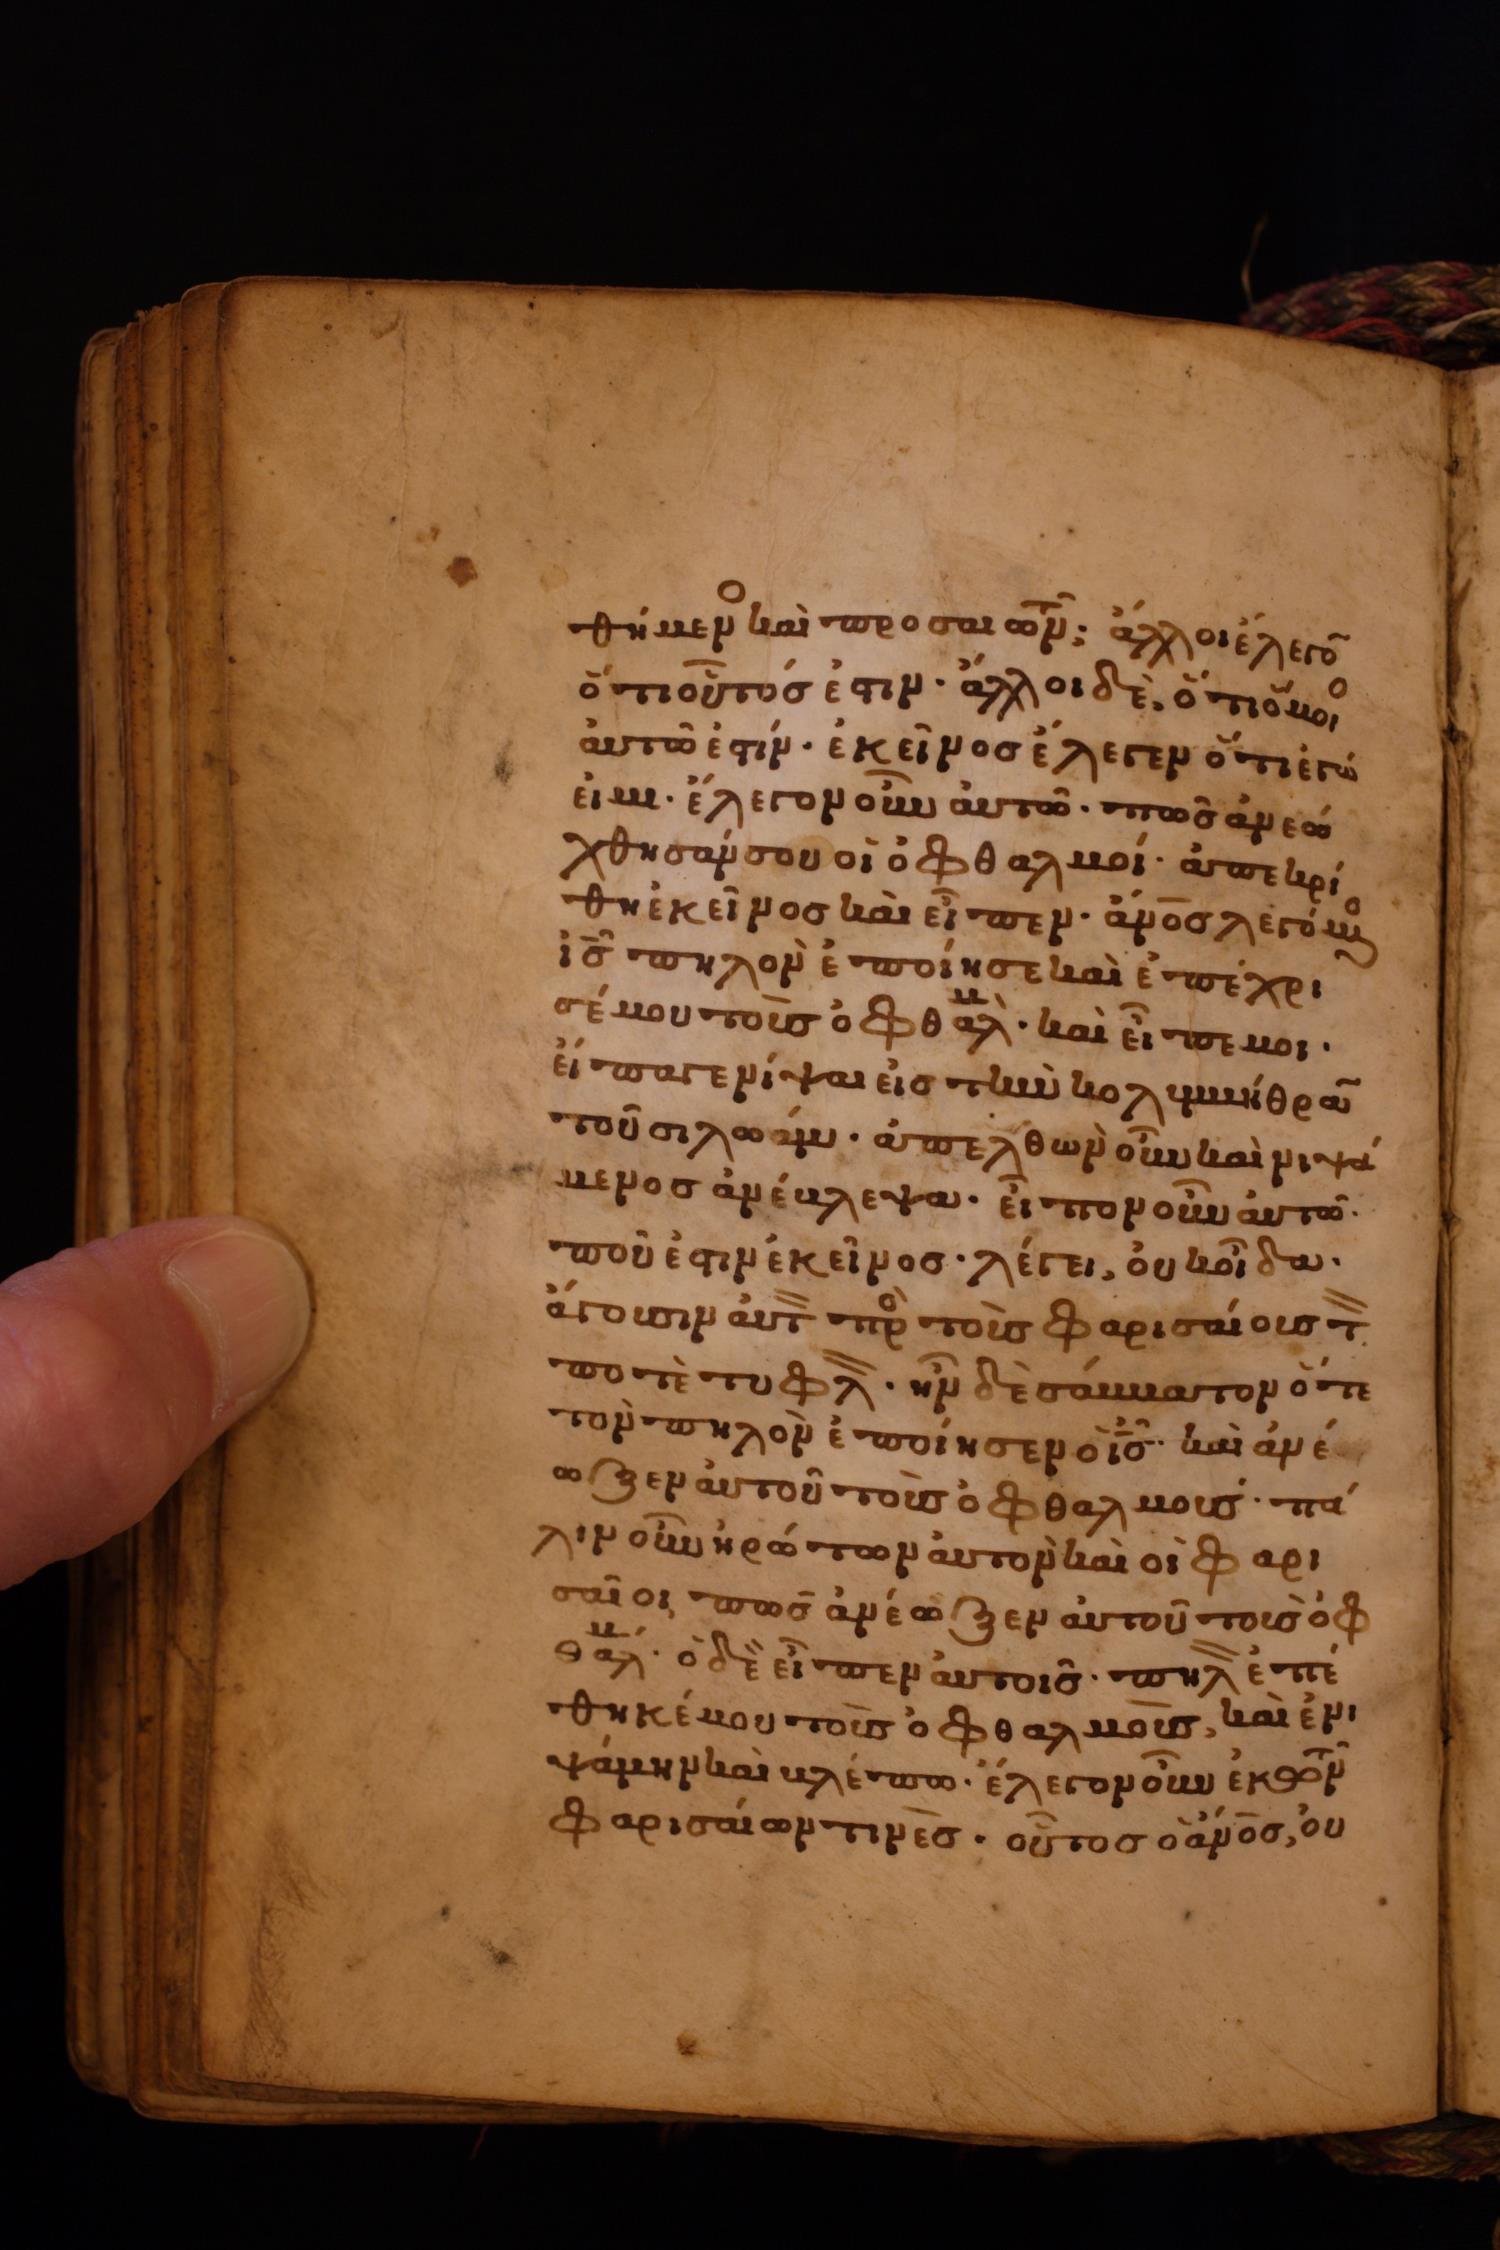 θήμεν ͦ καὶ προσαιτῶν; ἄλλοι ἔλεγō
ὅτι οὗτός ἐστιν· ἄλλοι δὲ, ὅτι ὅμοι ͦ
αὐτῶ ἐστίν· ἐκεῖνος ἔλεγεν ὅτι ἐγώ
εἰμι· ἔλεγον οὖν αὐτῶ· πῶς ἀνεώ
χθησάν σου οἱ ὀφθαλμοί· ἀπεκρί
θη ἐκεῖνος καὶ εἶπεν· ἄν̅ο̅ς̅ λεγόμ ͦ
ι̅ς̅ πηλὸν ἐποίησε καὶ ἐπέχρι
σέ μου τοὺς ὀφθαλ ͫ· καὶ εἶπέ μοι·
εἵπαγε νίψαι εἰς τὴν κολυμβήθρᾱ
τοῦ σιλωάμ· ἀπελθὼν οὖν καὶ νιψά
μενος ἀνέβλεψα· εἶπον οὖν αὐτῶ·
ποῦ ἐστιν ἐκεῖνος· λέγει, οὐκ οἶδα·
ἄγουσιν αὐτ πρ ͦ τοὺς φαρισαίους τ
ποτὲ τυφλ· ἦν δὲ σάββατον ὅτε
τὸν πηλὸν ἐποίησεν ὁ ι̅ς̅· καὶ ἀνέ
ωξεν αὐτοῦ τοὺς ὀφθαλμούς· πά
λιν οὖν ἠρώτων αὐτὸν καὶ οἱ φαρι
σαῖοι, πῶς ἀνέωξεν αὐτοῦ τοὺς ὀφ
θαλ ͫ· ὁ δὲ εἶπεν αὐτοῖς· πηλ ἐπέ
θηκέ μου τοὺς ὀφθαλμοὺς, καὶ ἐνι
ψάμην καὶ βλέπω· ἔλεγον οὖν ἐκ τῶν
φαρισαίων τινὲς· οὗτος ὁ ἄν̅ο̅ς̅, οὐ